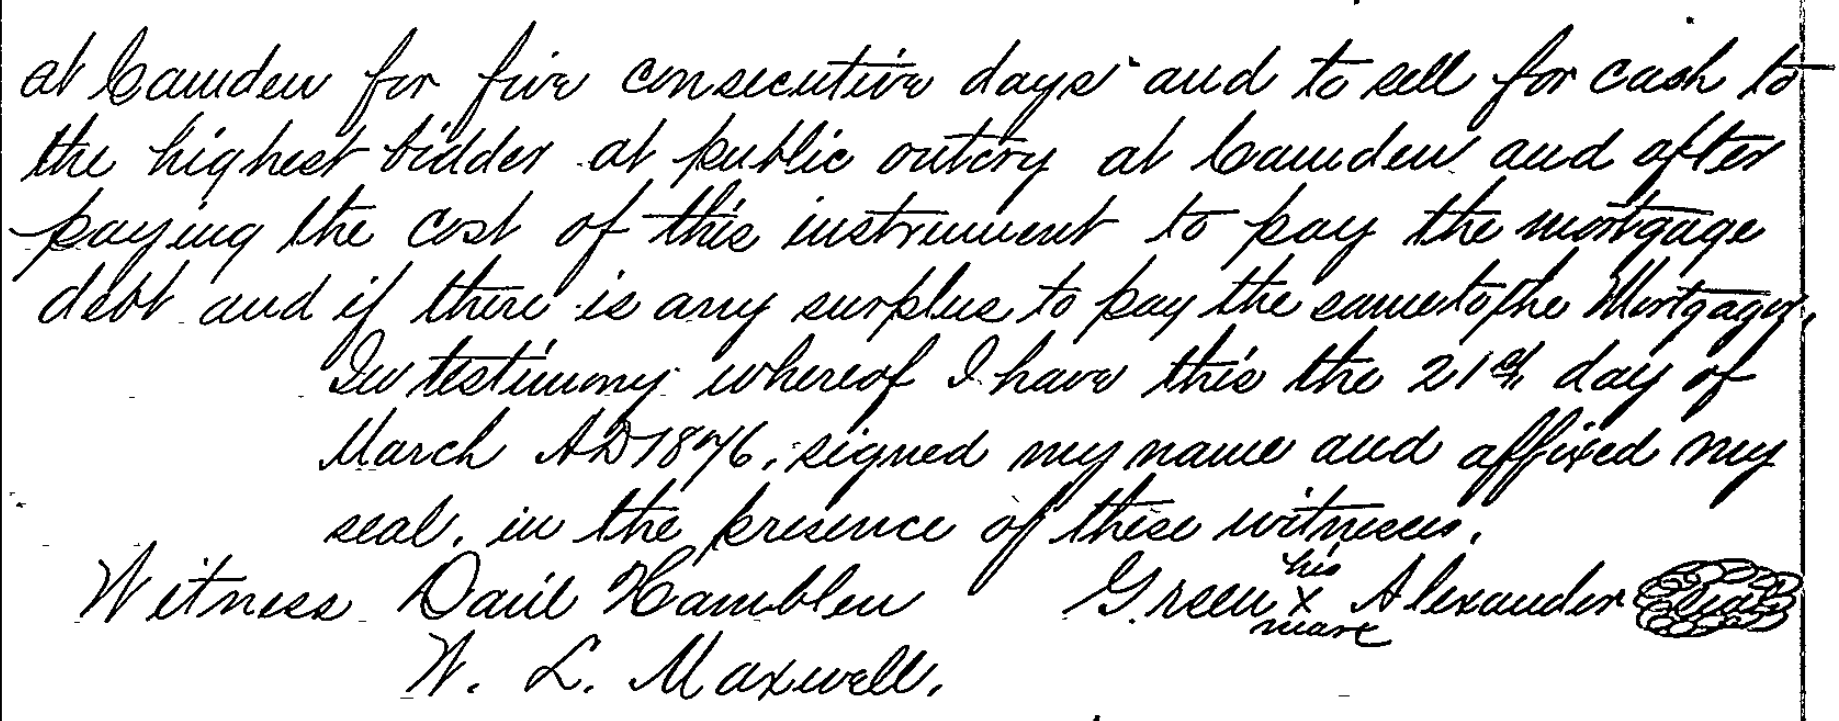 at Camden for five consecutive days and to sell for cash to
the highest bidder at public outcry at Camden and after
paying the cost of this instrument to pay the mortgage
debt and if there is any surplus to pay the same to the Mortgagor.
In testimony whereof I have this the 21st day of
March AD 1876, signed my name and affixed my
seal, in the presence of these witnesses.
his
Witness Danil Hamblen Green x Alexander Seal
mark
W. L. Maxwell.